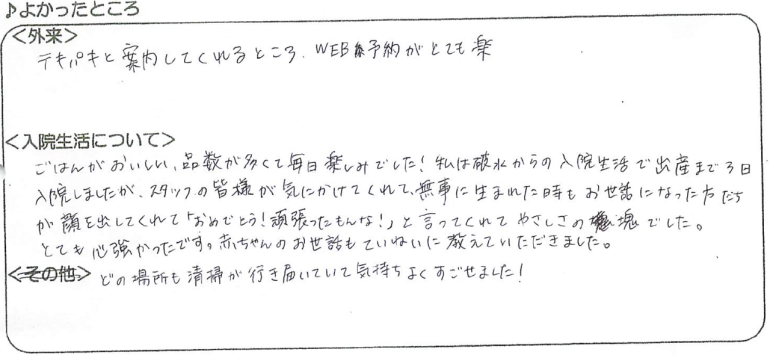 ♪よかったところ
<外来>
テキパキと案内してくれるところ、WEB予約がとても楽
<入院生活について>
ごはんがおいしい、品数が多くて毎日楽しみでした!私は破水からの入院生活で出産まで3日
入院しましたが、スタッフの皆様が気にかけてくれて、無事に生まれた時もお世話になった方たち
が顔を出してくれて「おめでとう!頑張ったもんな!」と言ってくれてやさしさの塊でした。
とても心強かったです。赤ちゃんのお世話もていねいに教えていただきました。
<その他> どの場所も清掃が行き届いていて気持ちよくすごせました!